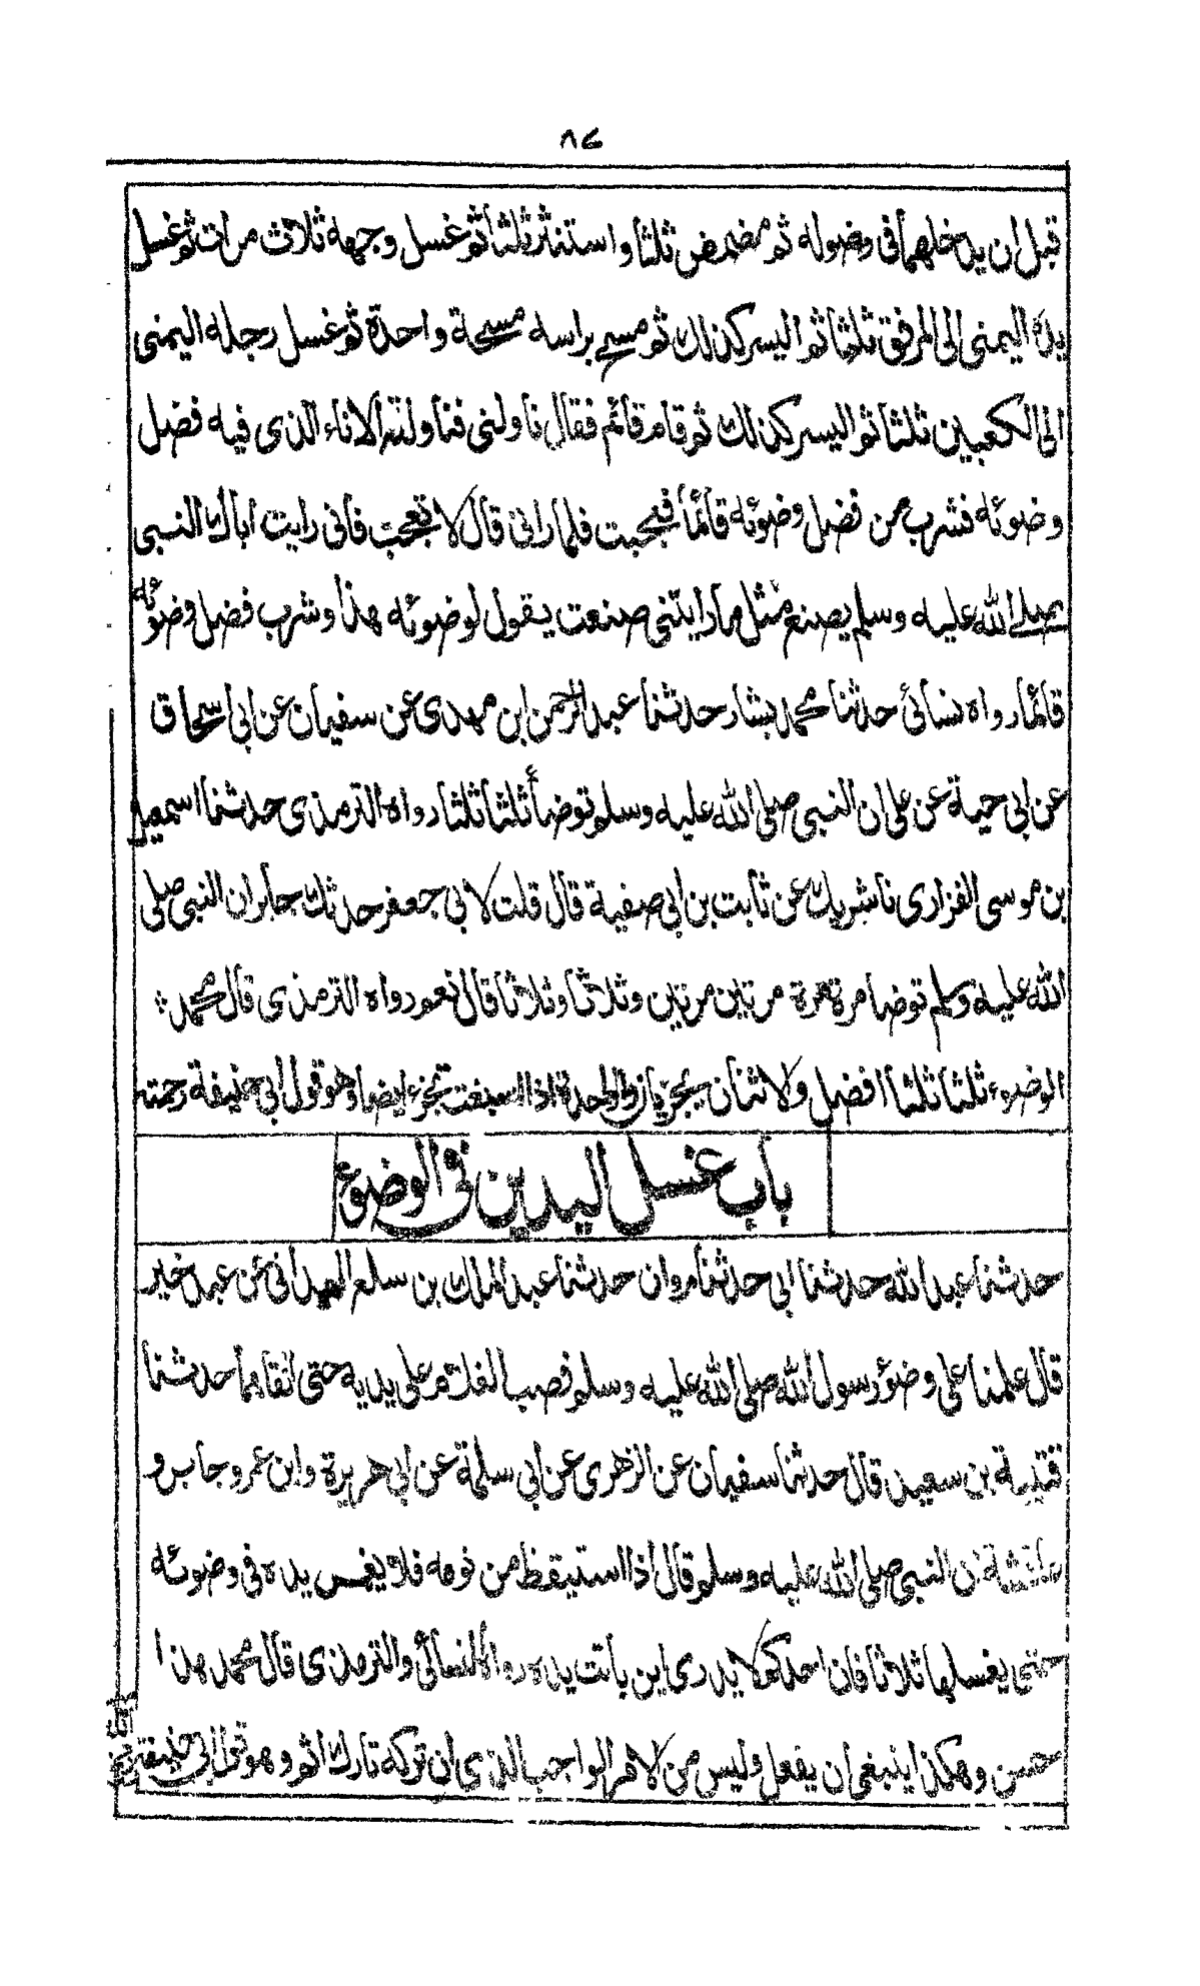 ٨٤
قبل ان يدخلهما فى وضوله ثم مضمض ثلثا واستنثر ثلثا ثم غسل وجهه ثلاث مرات ثم غسل
يدك اليمنى الى المرفق ثلثا ثم اليسر كذلك ثم مسح براسه مسحة واحدة ثم غسل رجله اليمنى
الى الكعبين ثلثا ثم اليسر كذلك ثم قام قائم فقال ناولنى فناولته الاناء الذى فيه فضل
وضوئه فشرب من فضل وضوئه قائما فعجبت فلما رانى قال لا تعجب فانى رايت اباك النبى
صلى الله عليه وسلم يصنع مثل ما رايتنى صنعت يقول لوضوئه هذا وشرب فضل وضوئه
قائما رواه نسائى حدثنا محمد بشار حدثنا عبد الرحمن ابن مهدى عن سفيان عن ابى اسحاق
عن ابى حية عن على ان النبى صلى الله عليه وسلم توضأ ثلثا ثلثا رواه الترمذى حدثنا اسمعيل
بن موسى الفزارى نا شريك عن ثابت بن ابى صفية قال قلت لابى جعفر حدثك جابر ان النبى صلى
الله عليه وسلم توضا مرة مرة مرتين مرتين وثلاثا وثلاثا قال نعم رواه الترمذى قال محمد
الوضوء ثلثا ثلثا افضل ولاثنان يجزيان والواحدة اذا اسبغت تجزء ايضا وهو قول ابى حنيفة رحمته
باب غسل اليدين فى الوضوء
حدثنا عبد الله حدثنا ابى حدثنا مروان حدثنا عبد الملك بن سلع الهمدانى عن عبد خير
قال علمنا على وضؤ رسول الله صلى الله عليه وسلم فصب الغلام على يديه حتى انقاهما حدثنا
قتيبة بن سعيد قال حدثنا سفيان عن الزهرى عن ابى سلمة عن ابى هريرة وابن عمر وجابر و
عائشة ان النبى صلى الله عليه وسلم قال اذا استيقظ من نومه فلا يغمس يده فى وضوئه
حتى يغسلها ثلاثا فان احدكم لا يدرى اين باتت يده رواه النسائى والترمذى قال محمد هذا
حسن وهكذا ينبغى ان يفعل وليس من لامر الواجب الذى ان تركه تارك اثم وهو قول ابى حنيفة